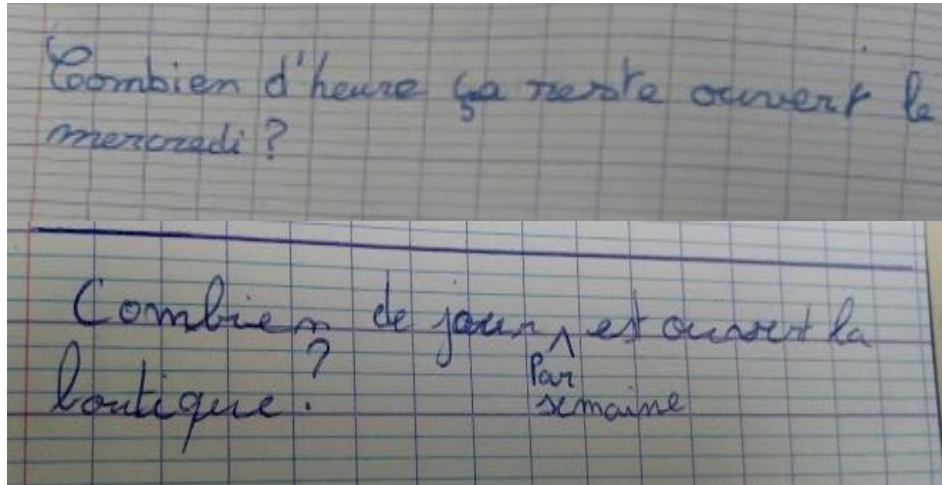 Combien d'heure ça reste ouvert le
mercredi ?
Combien de jour par semaine est ouvert la
boutique ?